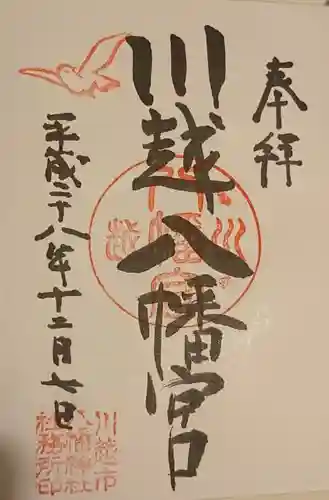 奉拝
川越八幡宮
平成二十八年十二月七日
川越
八幡宮
川越市
八幡神社
社務所印